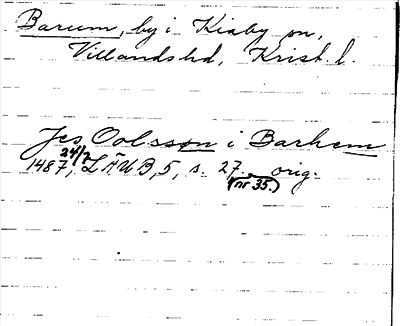 Barum, by i Kiaby sn,
Villands hd, Krist. l.
Jes Oolsson i Barhem
24/2
1487, LÄUB, 5, s. 27. orig.
(nr 35.)